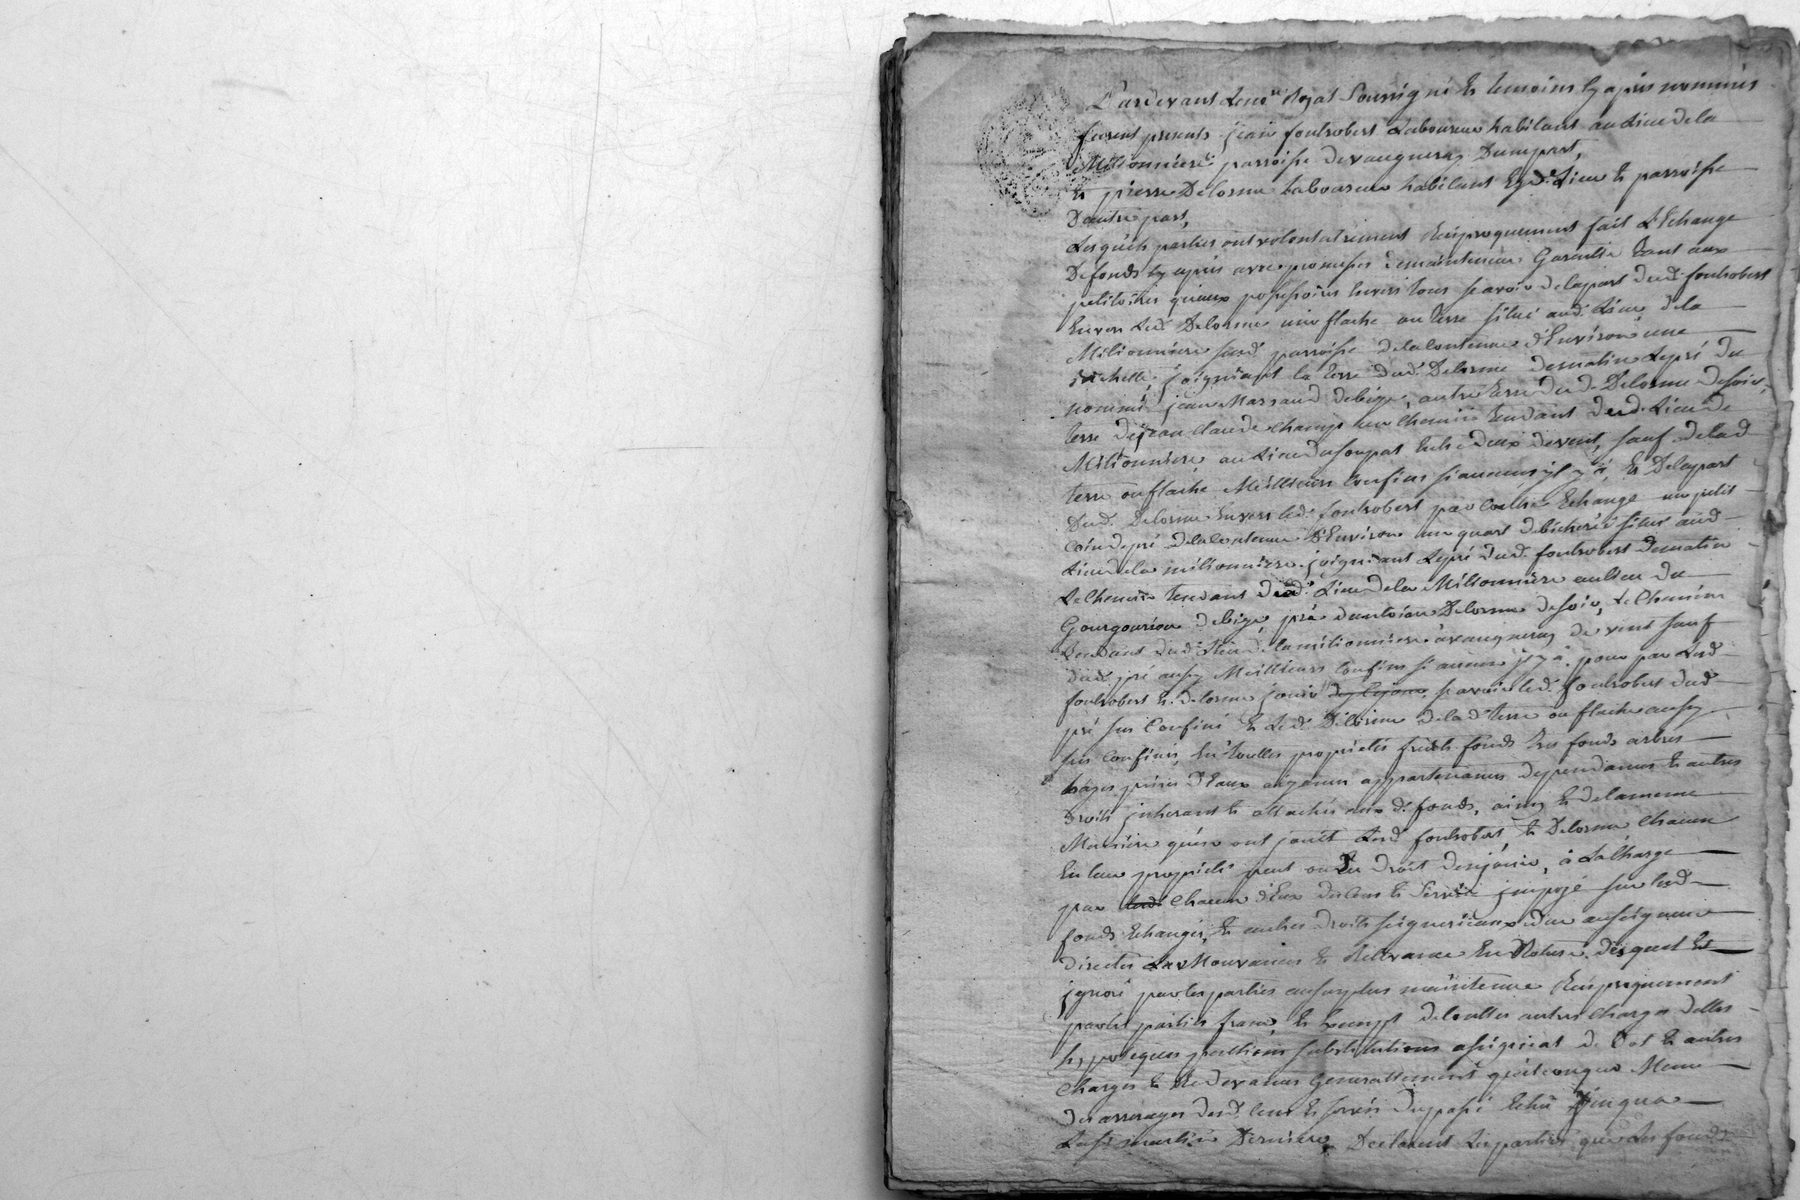 Pardevant Le no.re Royal Soussigné et temoins cy apres nommés
furent presents jean foulrobert Laboureur habitant au Lieu de la
Milionniere parroisse de vaugneray D'une part,
et pierre Delorme Laboureur habitant esd. Lieu et parroisse
D'autre part,
Lesquels parties ont volontairement Reciproquement fait L'Echange
De fonds cy apres avec promesses de maintenue Garantie tant aux
petitoires qu'aux possessoires Envers tous scavoir de la part dud. foulrobert
Envers Led. Delorme une flache ou terre situé aud. Lieu de la
Milionniere susd. parroisse de la contenue d'Environ une
joignant la terre dud. Delorme de matin Le pré du
nommé jean Marsaud de bize, autre terre dud. Delorme de soir,
terre de jean claude champ un chemin tendant dud. Lieu de
Milionniere au Lieu du Soupat entre deux de vent, sauf de lad.
terre ou flache Meillieurs Confins si aucuns jl y a, et De la part
Dud. Delorme Envers led. foulrobert par Contre Echange un petit
Coin de pré de la contenue D'Environ un quart de bicherée situé aud.
Lieu de la milionniere joignant Le pré dud. foulrobert de matin
Le Chemin tendant dud. Lieu de la Milionniere au lieu du
Gourgourion de bize, pré d'antoine Delorme de soir, Le Chemin
tendant dud. Lieu de la milionniere a vaugneray de vent sauf
dud. pré aussy Meillieurs Confins si aucuns jl y a, pour par Lesd.
foulrobert et Delorme jouir scavoir led. foulrobert dud.
pré sus Confiné et Led. Delorme de lad. terre ou flache aussy
sus confinés, En toutes proprietés fruits fonds tres fonds arbres
prises D'Eaux aizances appartenances dependances et autres
Droits jnherant et attachés aux d. fonds, ainsy et de la meme
Maniere qu'en ont jouit Lesd. foulrobert et Delorme Chacun
En leur proprieté peut ou eu Droit d'en jouir, à La Charge
par Chacun d'Eux des cens et Servis jmposé sur lesd.
fonds Echangés, et autres droits seigneuriaux due au seigneur
directes La Mouvance et Relevance En Roture, desquels Est
jgnoré par les parties au surplus maintenue Reciproquement
par les parties franc, et Exempt de toutes autres charges dettes
hypoteques pentions substitutions assignat de Dot et autres
Charges et Redevances Generallement quelconque Meme
des arrerages desd. cens et servis du passé Echu jusqua
La St martin Derniere, Declarent Les parties que Les fonds